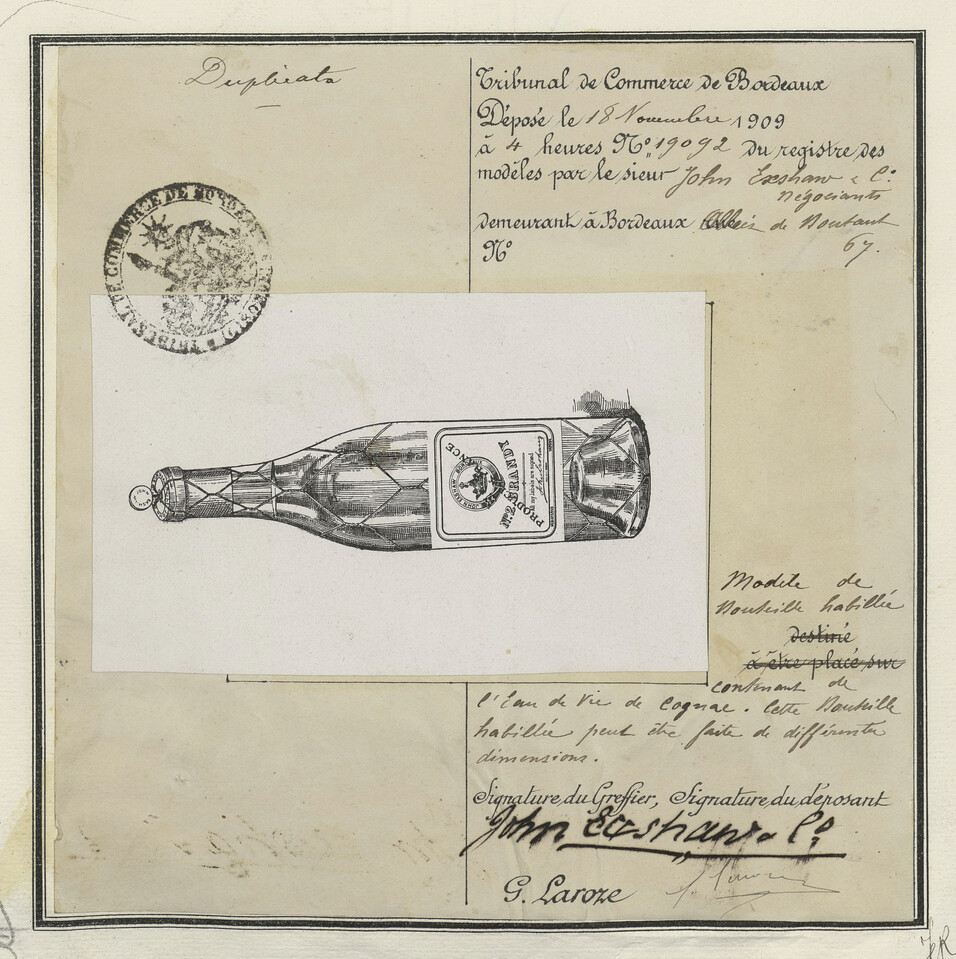 Duplicata
Tribunal de Commerce de Bordeaux
Déposé le 18 Novembre 1909
à 4 heures Nº 19092 du registre des
modèles par le sieur John Exshaw & Cº
Négociants
demeurant à Bordeaux Allées de Boutaut
Nº 67.
TRIBUNAL DE COMMERCE DE BORDEAUX
PRODUCE
FRANCE
BRANDY
JOHN EXSHAW
Modèle de
Bouteille habillée
destiné
à être placé sur
contenant de
l'Eau de Vie de Cognac. Cette Bouteille
habillée peut être faite de différentes
dimensions.
Signature du Greffier, Signature du déposant
John Exshaw & Cº
G. Laroze